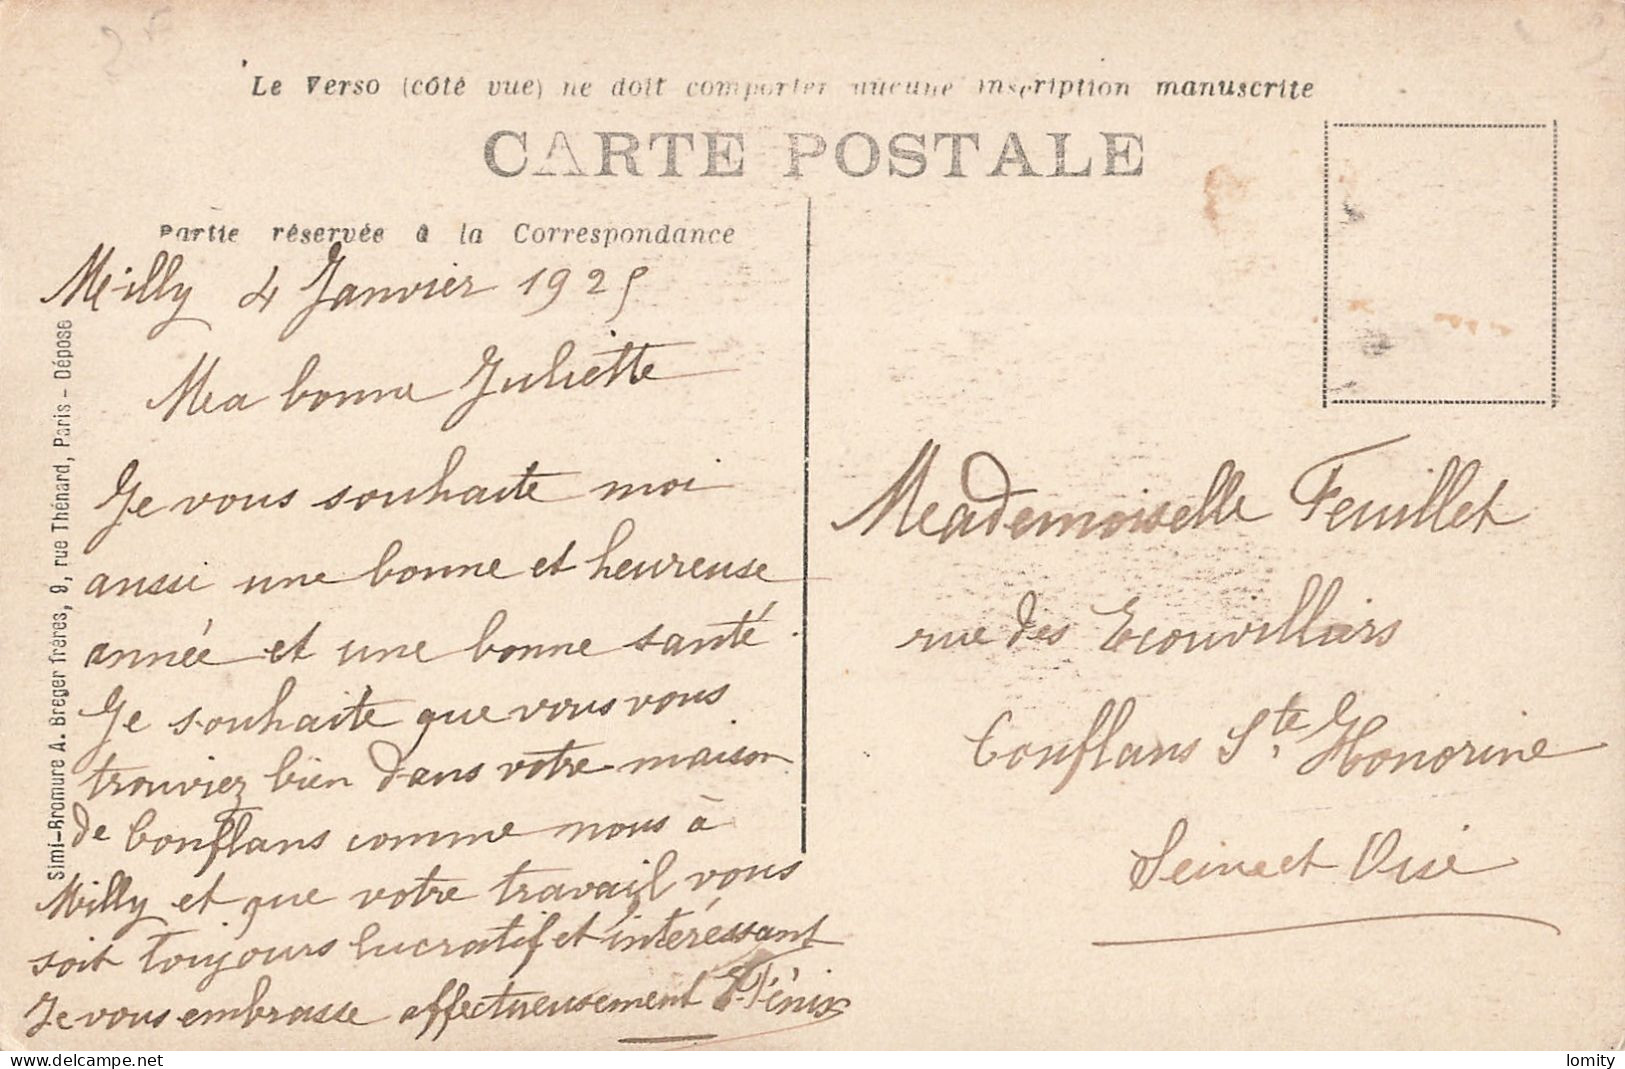 Le Verso (côté vue) ne doit comporter aucune inscription manuscrite
CARTE POSTALE
Partie réservée à la Correspondance
Milly 4 Janvier 1925
Ma bonne Juliette
Je vous souhaite moi
aussi une bonne et heureuse
année et une bonne santé.
Je souhaite que vous vous
trouviez bien dans votre maison
de Conflans comme nous à
Milly et que votre travail vous
soit toujours lucratif et intéressant
Je vous embrasse affectueusement
Mademoiselle Feuillet
rue des Ecouvillers
Conflans Ste Honorine
Seine et Oise
Simi-Bromure A. Breger frères, 9, rue Thénard, Paris - Déposé
lomity